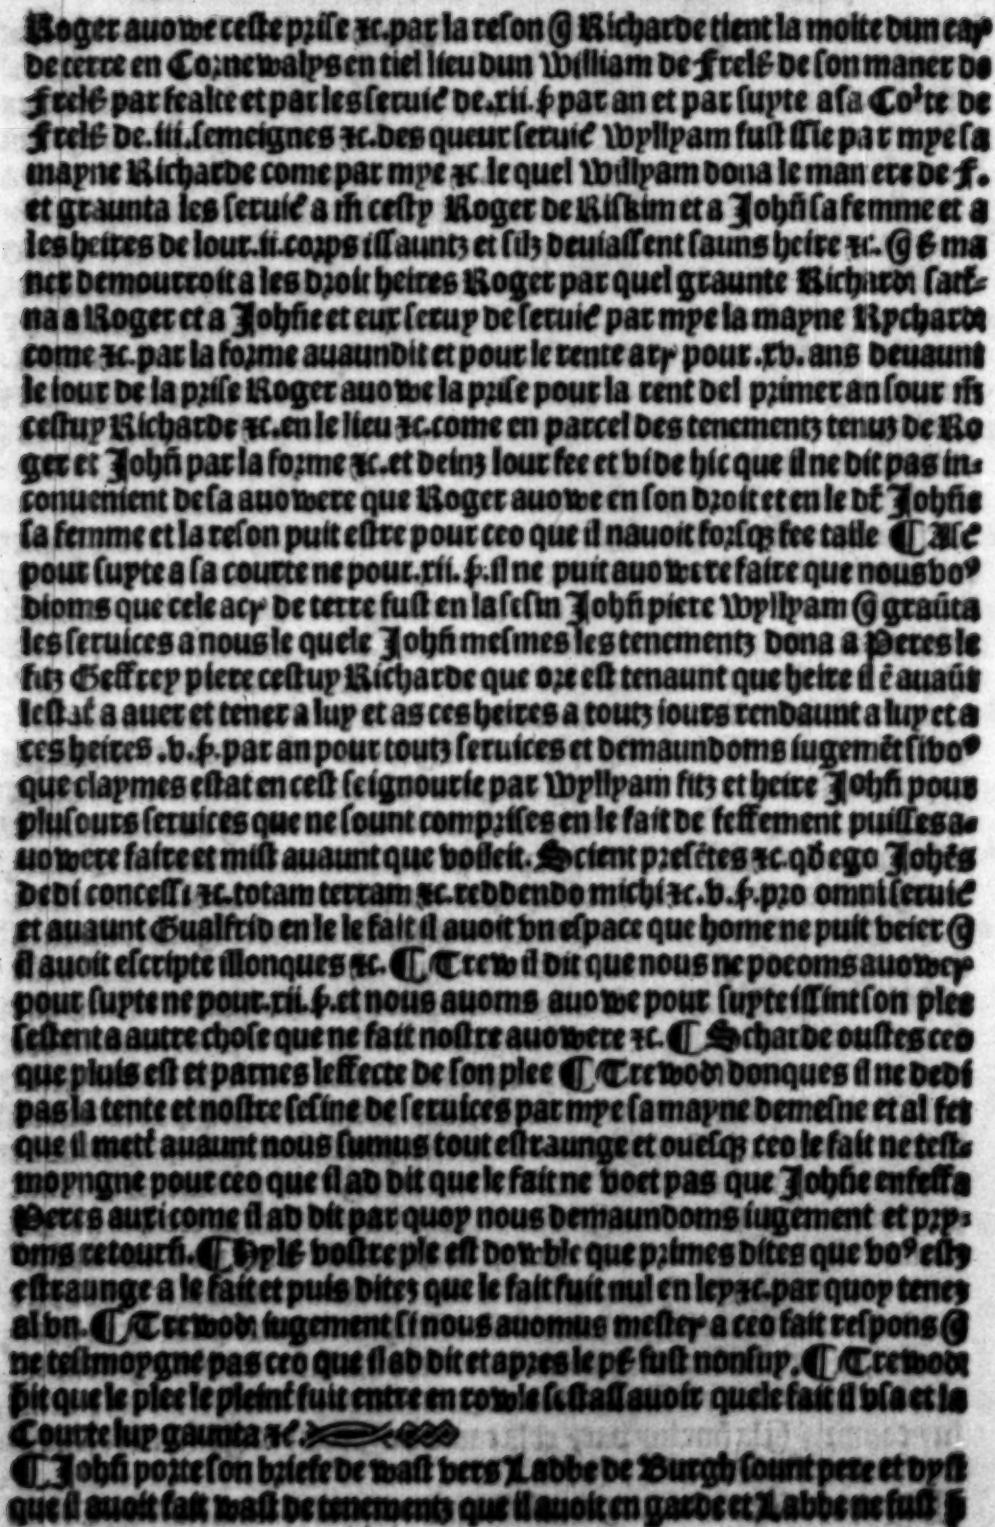 Roger auowe ceste prise ⁊c. par la reson q̃ Richarde tient la moite dun car̃
de terre en Cornewalys en tiel lieu dun William de frelẽ de son maner de
frelẽ par fealte et par les seruic̃ de .xii. ꝑ par an et par suyte a sa Co²te de
frelẽ de .iii. semeignes ⁊c. des queux seruic̃ wyllyam fust ssie par mye sa
mayne Richarde come par mye ⁊c le quel willyam dona le manere de f.
et graunta les seruic̃ a m̃ cesty Roger de Riskim et a Joħn sa femme et a
les heires de lour .ii. corps issauntz et silz deuiassent sauns heire ⁊c. q̃ ẽ ma
ner demourroit a les droit heires Roger par quel graunte Richard satt-
na a Roger et a Joħne et eux seruy de seruic̃ par mye la mayne Rycharde
come ⁊c. par la forme auaundit et pour le rente arr̃ pour .xv. ans deuaunt
le iour de la prise Roger auowe la prise pour la rent del primer an sour m̃
cestuy Richarde ⁊c. en le lieu ⁊c. come en parcel des tenementz tenuz de Ro
ger et Joħn par la forme ⁊c. et deinz lour fee et vide hic que il ne dit pas in-
conuenient de sa auowere que Roger auowe en son droit et en le dt̃ Joħne
sa femme et la reson puit estre pour ceo que il nauoit forsqz fee taile ¶ Asc̃
pour suyte a sa courte ne pour .xii. ꝑ. il ne puit auowere faire que nous vo⁹
dioms que cele acr̃ de terre fust en la sesin Joħn piere wyllyam q̃ graūta
les seruices a nous le quele Joħn mesmes les tenementz dona a Peres le
fitz Geffrey piere cestuy Richarde que ore est tenaunt que heire il ẽ auaūt
lestat̃ a auer et tener a luy et as ces heires a toutz iours rendaunt a luy et a
ces heires .v. ꝑ. par an pour toutz seruices et demaundoms iugemẽt si vo⁹
que claymes estat en cest seignourie par wyllyam fitz et heire Joħn pour
plusours seruices que ne sount comprises en le fait de feffement puisses a-
uowere faire et mist auaunt que voileit. Scient presẽtes ⁊c. qđ ego Joħes
dedi concessi ⁊c. totam terram ⁊c. reddendo michi ⁊c. v. ꝑ. pro omni seruic̃
et auaunt Gualfrid en le le fait il auoit vn espace que home ne puit veier q̃
il auoit escripte illonques ⁊c. ¶ Trew il dit que nous ne poeoms auower̃
pour suyte ne pour .xii. ꝑ. et nous auoms auowe pour suyte issint son plee
sestent a autre chose que ne fait nostre auowere ⁊c. ¶ Scharde oustes ceo
que pluis est et parnes leffecte de son plee ¶ Trewod donques il ne dedi
pas la tente et nostre sesine de seruices par mye sa mayne demesne et al fet
que il mett̃ auaunt nous sumus tout estraunge et ouesqz ceo le fait ne test-
moyngne pour ceo que il ad dit que le fait ne voet pas que Joħne enfeffa
Peres auxi come il ad dit par quoy nous demaundoms iugement et pry-
oms retourn̄. ¶ Hylẽ vostre ple est double que primes dites que vo⁹ estz
estraunge a le fait et puis ditez que le fait fuit nul en ley ⁊c. par quoy tenez
al vn. ¶ Trewod iugement si nous auomus mester̃ a ceo fait respons q̃
ne testmoygne pas ceo que il ad dit et apres le pẽ fust nonsuy. ¶ Trewode
p̃it que le plee le pleint̃ fuit entre en rowle sestassauoir quele fait il vsa et la
Courte luy gaunta ⁊c̃.
¶ Joħn porte son briefe de wast vers Labbe de Burgh sount pere et dyst
que il auoit fait wast de tenementz que il auoit en garde et Labbe ne fust p̃